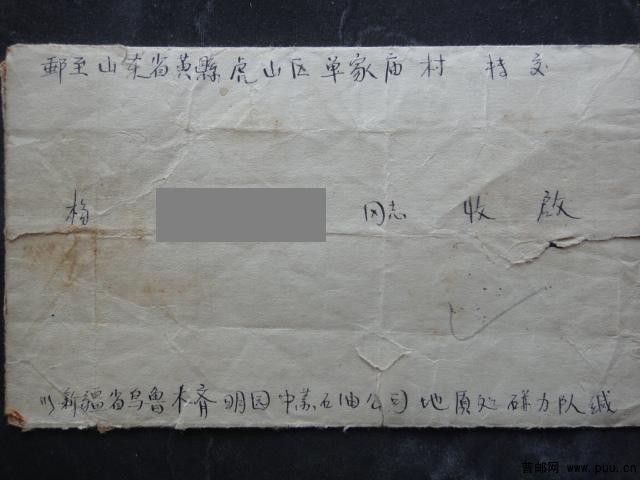 郵至山东省黄縣虎山区单家庙村 转交
杨 同志 收 啟
从新疆省乌鲁木齐明园中苏石油公司地质处磁力队缄
普邮网 www.puu.cn